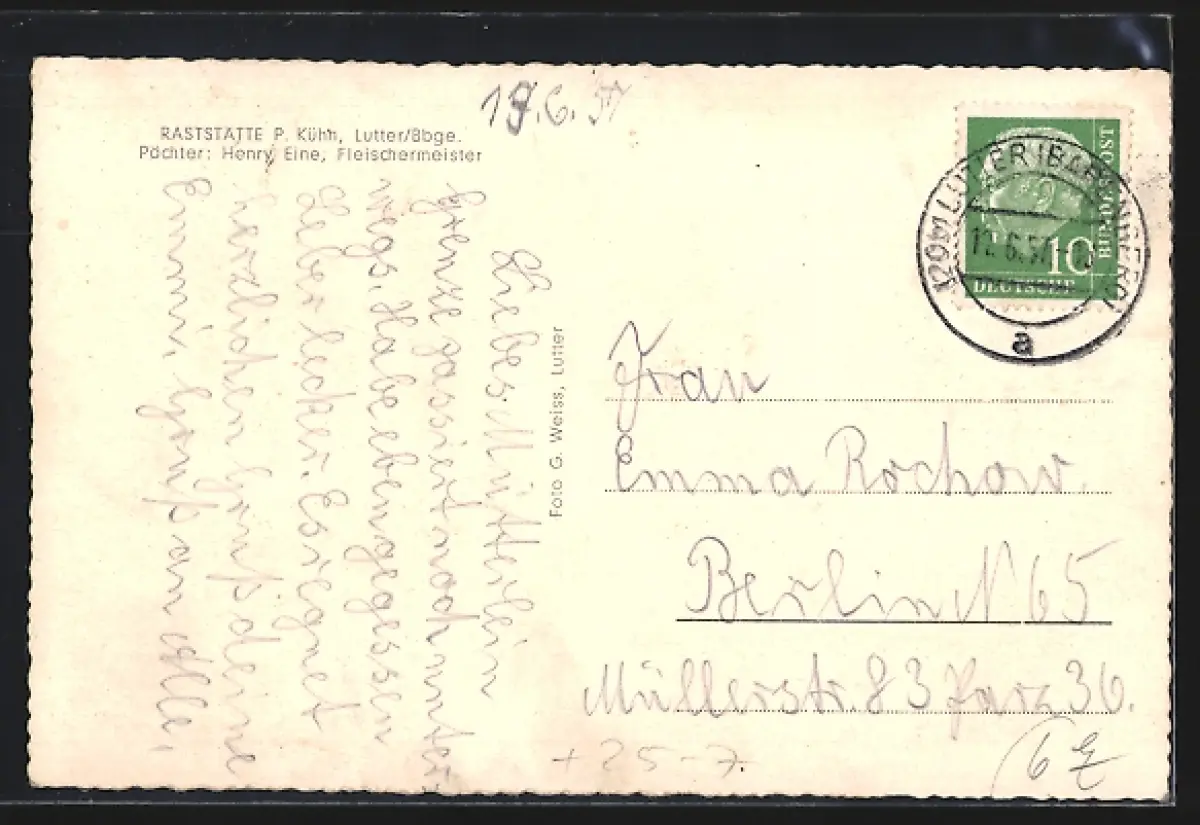 RASTSTÄTTE P. Kühn, Lutter/Bbge.
Pächter: Henry Eine, Fleischermeister
19.6.57
Liebes Mütterlein
Grenze passiert noch unter
wegs. Habe eben gegessen
Leber lecker. Es regnet
herzlichen Gruß deine
Emmi, Gruß an alle,
Foto G. Weiss, Lutter
(20b) LUTTER (BARENBERG)
a
6.57
10
DEUTSCHE
BUNDESPOST
Frau
Emma Rochow.
Berlin N 65
Müllerstr. 83 Parz 36.
+ 25-7.